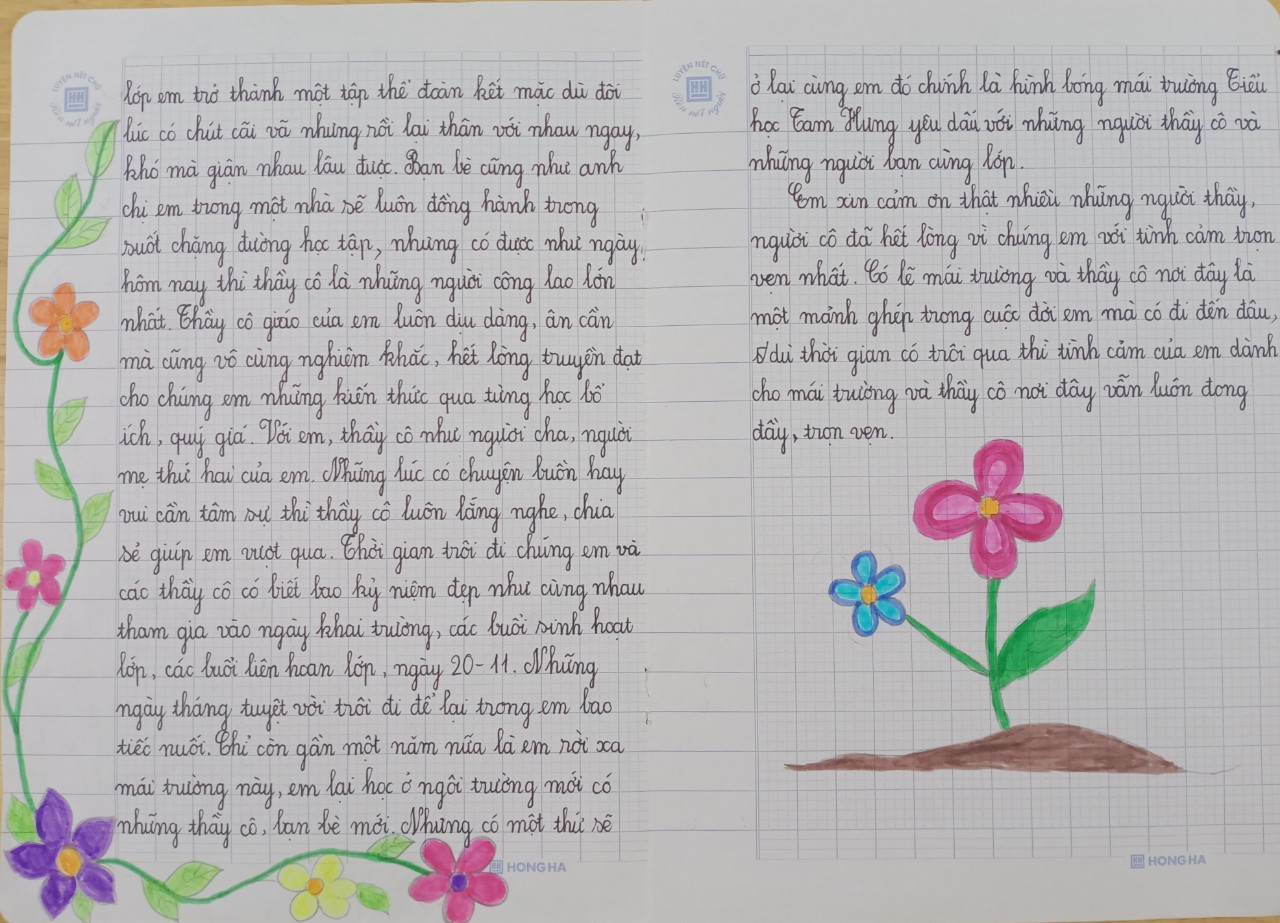 LUYỆN NÉT CHỮ
HH
Rèn nết người
lớp em trở thành một tập thể đoàn kết mặc dù đôi
lúc có chút cãi vã nhưng rồi lại thân với nhau ngay,
khó mà giận nhau lâu được. Bạn bè cũng như anh
chị em trong một nhà sẽ luôn đồng hành trong
suốt chặng đường học tập, nhưng có được như ngày
hôm nay thì thầy cô là những người công lao lớn
nhất. Thầy cô giáo của em luôn dịu dàng, ân cần
mà cũng vô cùng nghiêm khắc, hết lòng truyền đạt
cho chúng em những kiến thức qua từng học bổ
ích, quý giá. Với em, thầy cô như người cha, người
mẹ thứ hai của em. Những lúc có chuyện buồn hay
vui cần tâm sự thì thầy cô luôn lắng nghe, chia
sẻ giúp em vượt qua. Thời gian trôi đi chúng em và
các thầy cô có biết bao kỷ niệm đẹp như cùng nhau
tham gia vào ngày khai trường, các buổi sinh hoạt
lớp, các buổi liên hoan lớp, ngày 20-11. Những
ngày tháng tuyệt vời trôi đi để lại trong em bao
tiếc nuối. Chỉ còn gần một năm nữa là em rời xa
mái trường này, em lại học ở ngôi trường mới có
những thầy cô, bạn bè mới. Nhưng có một thứ sẽ
HH HONG HA
LUYỆN NÉT CHỮ
HH
Rèn nết người
ở lại cùng em đó chính là hình bóng mái trường Tiểu
học Tam Hưng yêu dấu với những người thầy cô và
những người bạn cùng lớp.
Em xin cảm ơn thật nhiều những người thầy,
người cô đã hết lòng vì chúng em với tình cảm trọn
vẹn nhất. Có lẽ mái trường và thầy cô nơi đây là
một mảnh ghép trong cuộc đời em mà có đi đến đâu,
dù thời gian có trôi qua thì tình cảm của em dành
cho mái trường và thầy cô nơi đây vẫn luôn đong
đầy, trọn vẹn.
HH HONG HA